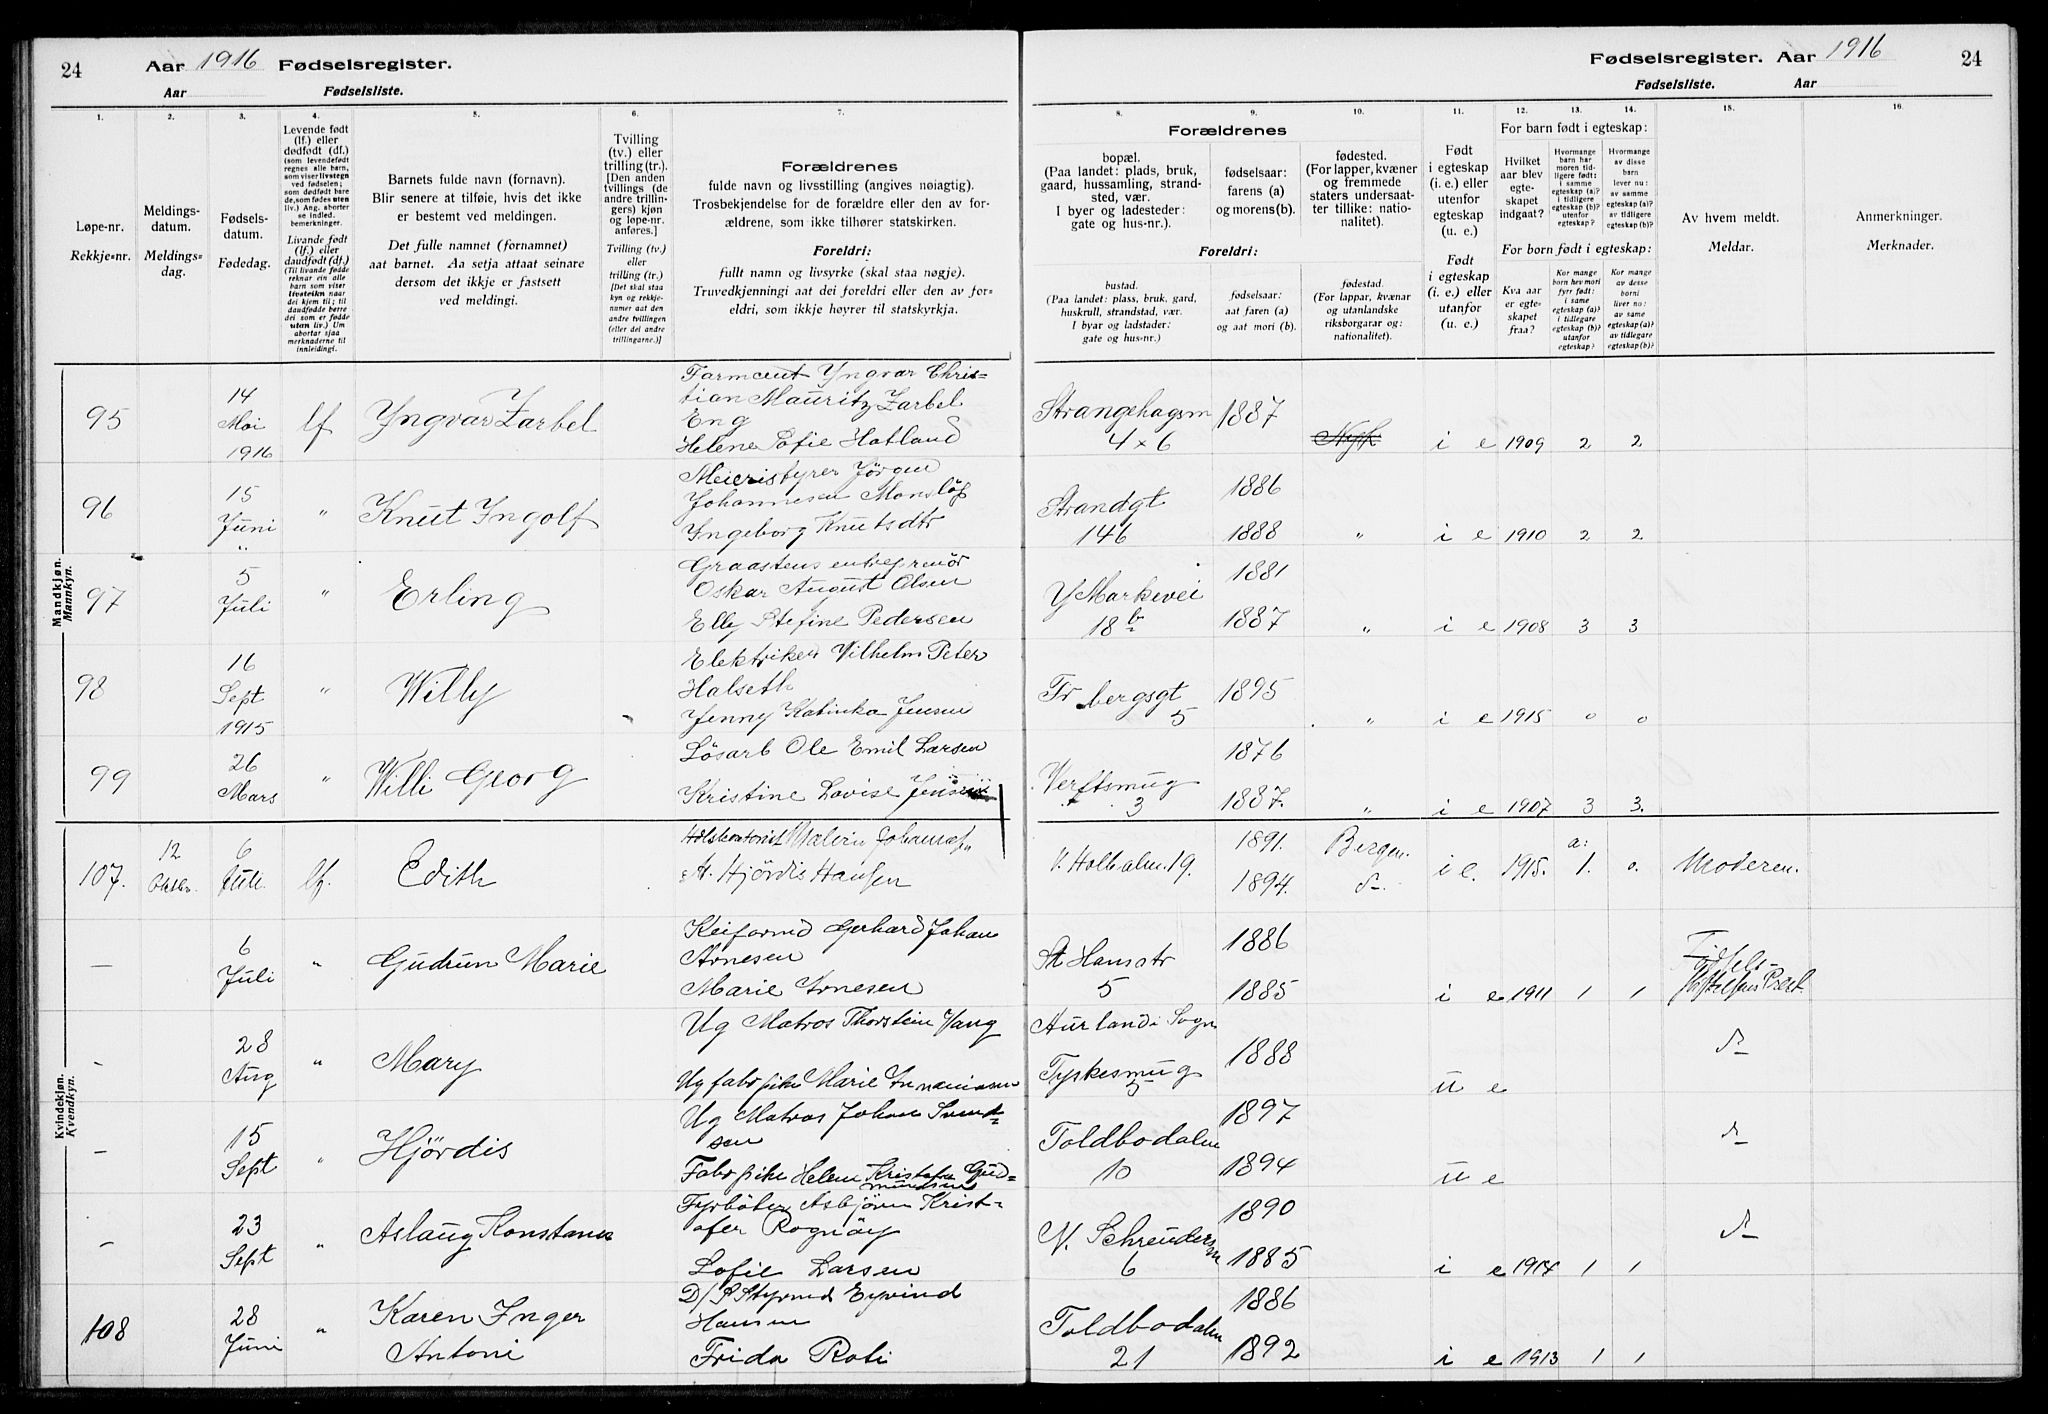 24 Aar 1916 Fødselsregister.
Aar Fødselsliste.
Fødselsregister. Aar 1916 24
Fødselsliste. Aar
1. 2. 3. 4. 5. 6. 7. 8. 9. 10. 11. 12. 13. 14. 15. 16.
Løpe-nr.
Rekkje-nr.
Meldings-
datum.
Meldings-
dag.
Fødsels-
datum.
Fødedag.
Levende født
(lf.) eller
dødfødt (df.)
(som levendefødt
regnes alle barn,
som viser livstegn
ved fødselen;
som dødfødt bare
de, som fødes uten
liv.) Ang. aborter
se indled.
bemerkninger.
Livande født
(lf.) eller
daudfødt (df.)
(Til livande fødde
reknar ein alle
barn som viser
livsteikn naar
dei kjem til; til
daudfødde berre
dei som er fødde
uten liv.) Um
abortar sjaa
merknaderne til
innleidingi.
Barnets fulde navn (fornavn).
Blir senere at tilføie, hvis det ikke
er bestemt ved meldingen.
Det fulle namnet (fornamnet)
aat barnet. Aa setja attaat seinare
dersom det ikkje er fastsett
ved meldingi.
Tvilling
(tv.) eller
trilling (tr.).
[Den anden
tvillings (de
andre trillin-
gers) kjøn
og løpe-nr.
anføres.]
Tvilling (tv.)
eller
trilling (tr.)
[Det skal staa
kyn og rekkje-
numer aat den
andre tvillingen
(eller dei andre
trillingarne.)]
Forældrenes
fulde navn og livsstilling (angives nøiagtig).
Trosbekjendelse for de forældre eller den av for-
ældrene, som ikke tilhører statskirken.
Foreldri:
fullt namn og livsyrke (skal staa nøgje).
Truvedkjenningi aat dei foreldri eller den av for-
eldri, som ikkje høyrer til statskyrkja.
Forældrenes
bopæl.
(Paa landet: plads, bruk,
gaard, hussamling, strand-
sted, vær.
I byer og ladesteder:
gate og hus-nr.).
fødselsaar:
farens (a)
og morens (b).
fødested.
(For lapper, kvæner
og fremmede
staters undersaat-
ter tillike: natio-
nalitet).
Foreldri:
bustad.
(Paa landet: plass, bruk, gard,
huskrull, strandstad, vær.
I byar og ladstader:
gate og hus-nr.)
fødselsaar:
aat faren (a)
og aat mori (b).
fødestad.
(For lappar, kvænar
og utanlandske
riksborgarar og:
nationalitet).
Født
i egteskap
(i. e.) eller
utenfor
egteskap
(u. e.)
Født
i egteskap
(i. e.) eller
utanfor
(u. e.)
For barn født i egteskap:
Hvilket
aar blev
egte-
skapet
indgaat?
Hvormange
barn har
moren tid-
ligere født:
i samme
egteskap (a)?
i tidligere
egteskap (b)?
utenfor
egteskap?
Hvormange
av disse
barn
lever nu:
av samme
egteskap (a)?
av tidligere
egteskap (b)?
For born født i egteskap:
Kva aar
er egte-
skapet
fraa?
Kor mange
born hev mori
fyrr født:
i same
egteskap (a)?
i tidlegare
egteskap (b)?
utanfor
egteskap?
Kor mange
av desse
borni
liver no:
av same
egteskap (a)?
av tidlegare
egteskap (b)?
Av hvem meldt.
Meldar.
Anmerkninger.
Merknader.
Mandkjøn.
Mannkyn.
95 14 Mai 1916 lf Yngvar Zarbel
Farmceut Yngvar Chris=
tian Mauritz Zarbel
Eng
Helene Sofie Hatland
Strangehagsm 4 x 6 1887 i e 1909 2 2
96 15 Juni " " Knut Ingolf
Meieristyrer Jörgen
Johannesen Monslöf
Ingeborg Knutsdtr
Strandgt 146 1886 1888 " i e 1910 2 2
97 5 Juli " Erling
Graastensentreprenör
Oskar August Olsen
Elly Stefine Pedersen
Y Markevei 18 b 1881 1887 " i e 1908 3 3
98 16 Sept 1915 " Willy
Elektriker Vilhelm Peter
Halseth
Jenny Katinka Jensen
Fr bergsgt 5 1895 " i e 1915 0 0
99 26 Mars " Willi Georg
Lösarb Ole Emil Larsen
Kristine Lovise
Verftsmug 3 1876 1887. " i e 1907 3 3.
Kvindekjøn.
Kvendkyn.
107. 12 Oktbr. 6 Juli. lf. Edith
Hjördis Hansen
V. Holbalm. 19. 1891. 1894. Bergen. d-. i e. 1915. a: 1. 0. Moderen.
— 6 Juli " Gudrun Marie
Gerhard Johan
Arnesen
Marie Arnesen
St Hansstr 5 1886 1885 i e 1911 1 1
- 28 Aug " Mary
Ug Matros Thorstein Vang
Ug fabrpike Marie
Aurland i Sogn
Tyskesmug 5 1888 u e d-
- 15 Sept " Hjördis
Ug Matros Johan Svend-
sen
Fabrpike Helene Kristofa Gud-
mundsen
Toldbodalm 10 1897 1894 u e d-
- 23 Sept " Aslaug Konstanse
Fyrböter Asbjörn Krist-
ofer Rognöy
Sofie Larsen
N. Schreudersm 6 1890 1885 i e 1914 1 1 d-
108 28 Juni " Karen Inger
Antoni
D/S Styrmd Eyvind
Hansen
Frida Roti
Toldbodalm 21 1886 1892 i e 1913 1 1